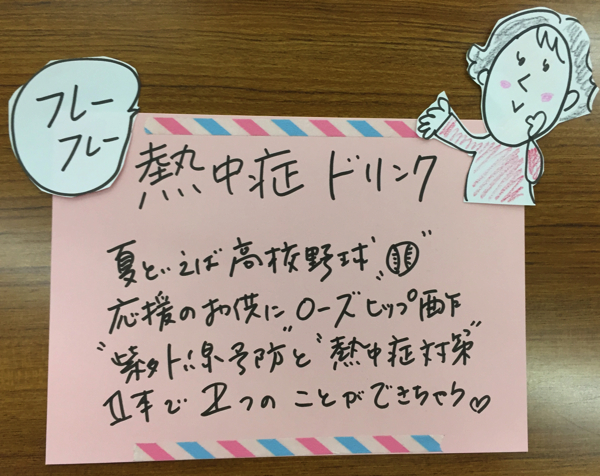 フレー
フレー
熱中症 ドリンク
夏といえば 高校野球
応援のお供に ローズヒップ酢
"紫外線予防"と"熱中症対策"
1本で 2つの ことができちゃう♡